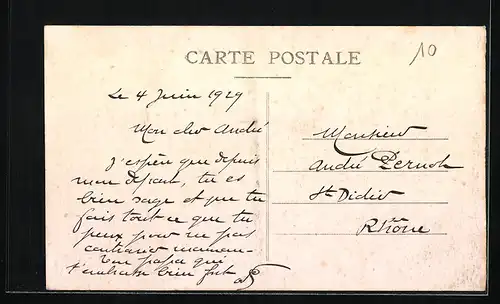 CARTE POSTALE
10
Le 4 Juin 1929
Mon cher André
J'espère que depuis
mon départ, tu es
bien sage et que tu
fais tout ce que tu
peux pour ne pas
contrarier maman -
Ton papa qui
t'embrasse bien fort
Monsieur
André Pernot
St Didier
Rhône